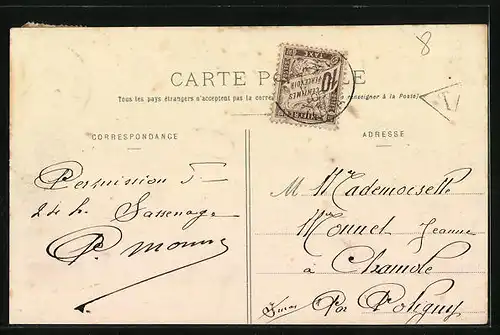 8
CARTE POSTALE
Tous les pays étrangers n'acceptent pas la corres renseigner à la Poste).
10
CENTIMES
À PERCEVOIR
TAXE
T
CORRESPONDANCE
ADRESSE
Permission
24 h. Sassenage
P. Monn
M Mademoiselle
Monnet Jeanne
à Chamole
Par Poligny